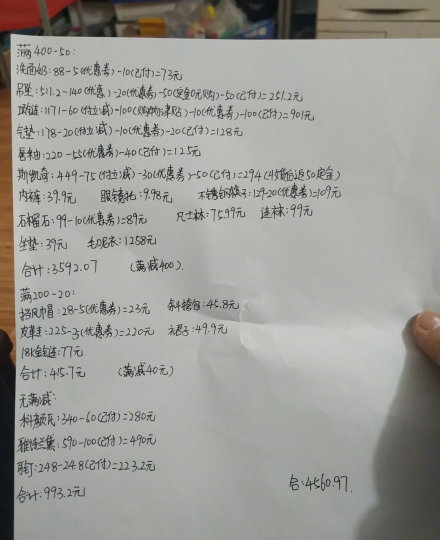 满400-50:
洗面奶:88-5(优惠券)-10(已付)=73元
吊坠:511.2-140(优惠)-20(优惠券)-50(定金0元购)-50(已付)=251.2元
项链:1171-60(付立减)-100(购物津贴)-10(优惠券)-100(已付)=901元
气垫:178-20(付立减)-10(优惠券)-20(已付)=128元
唇釉:220-55(优惠券)-40(已付)=125元
斯凯奇:449-75(付立减)-30(优惠券)-50(已付)=294(付款后返50定金)
内裤:39.9元 眼镜布:9.98元 不锈钢筷子:129-20(优惠券)=109元
石榴石:99-10(优惠券)=89元 凡士林:75.99元 连裤袜:99元
坐垫:39元 毛呢衣:1258元
合计:3592.07 (满减400)
满200-20:
挡风巾帽:28-5(优惠券)=23元 斜挎包:45.8元
皮鞋:225-3(优惠券)=220元 裙子:49.9元
18k金链:77元
合计:415.7元 (满减40元)
无满减:
科颜氏:340-60(已付)=280元
雅诗兰黛:590-100(已付)=490元
耳钉:248-24.8(已付)=223.2元
合计:993.2元
合:4560.97.